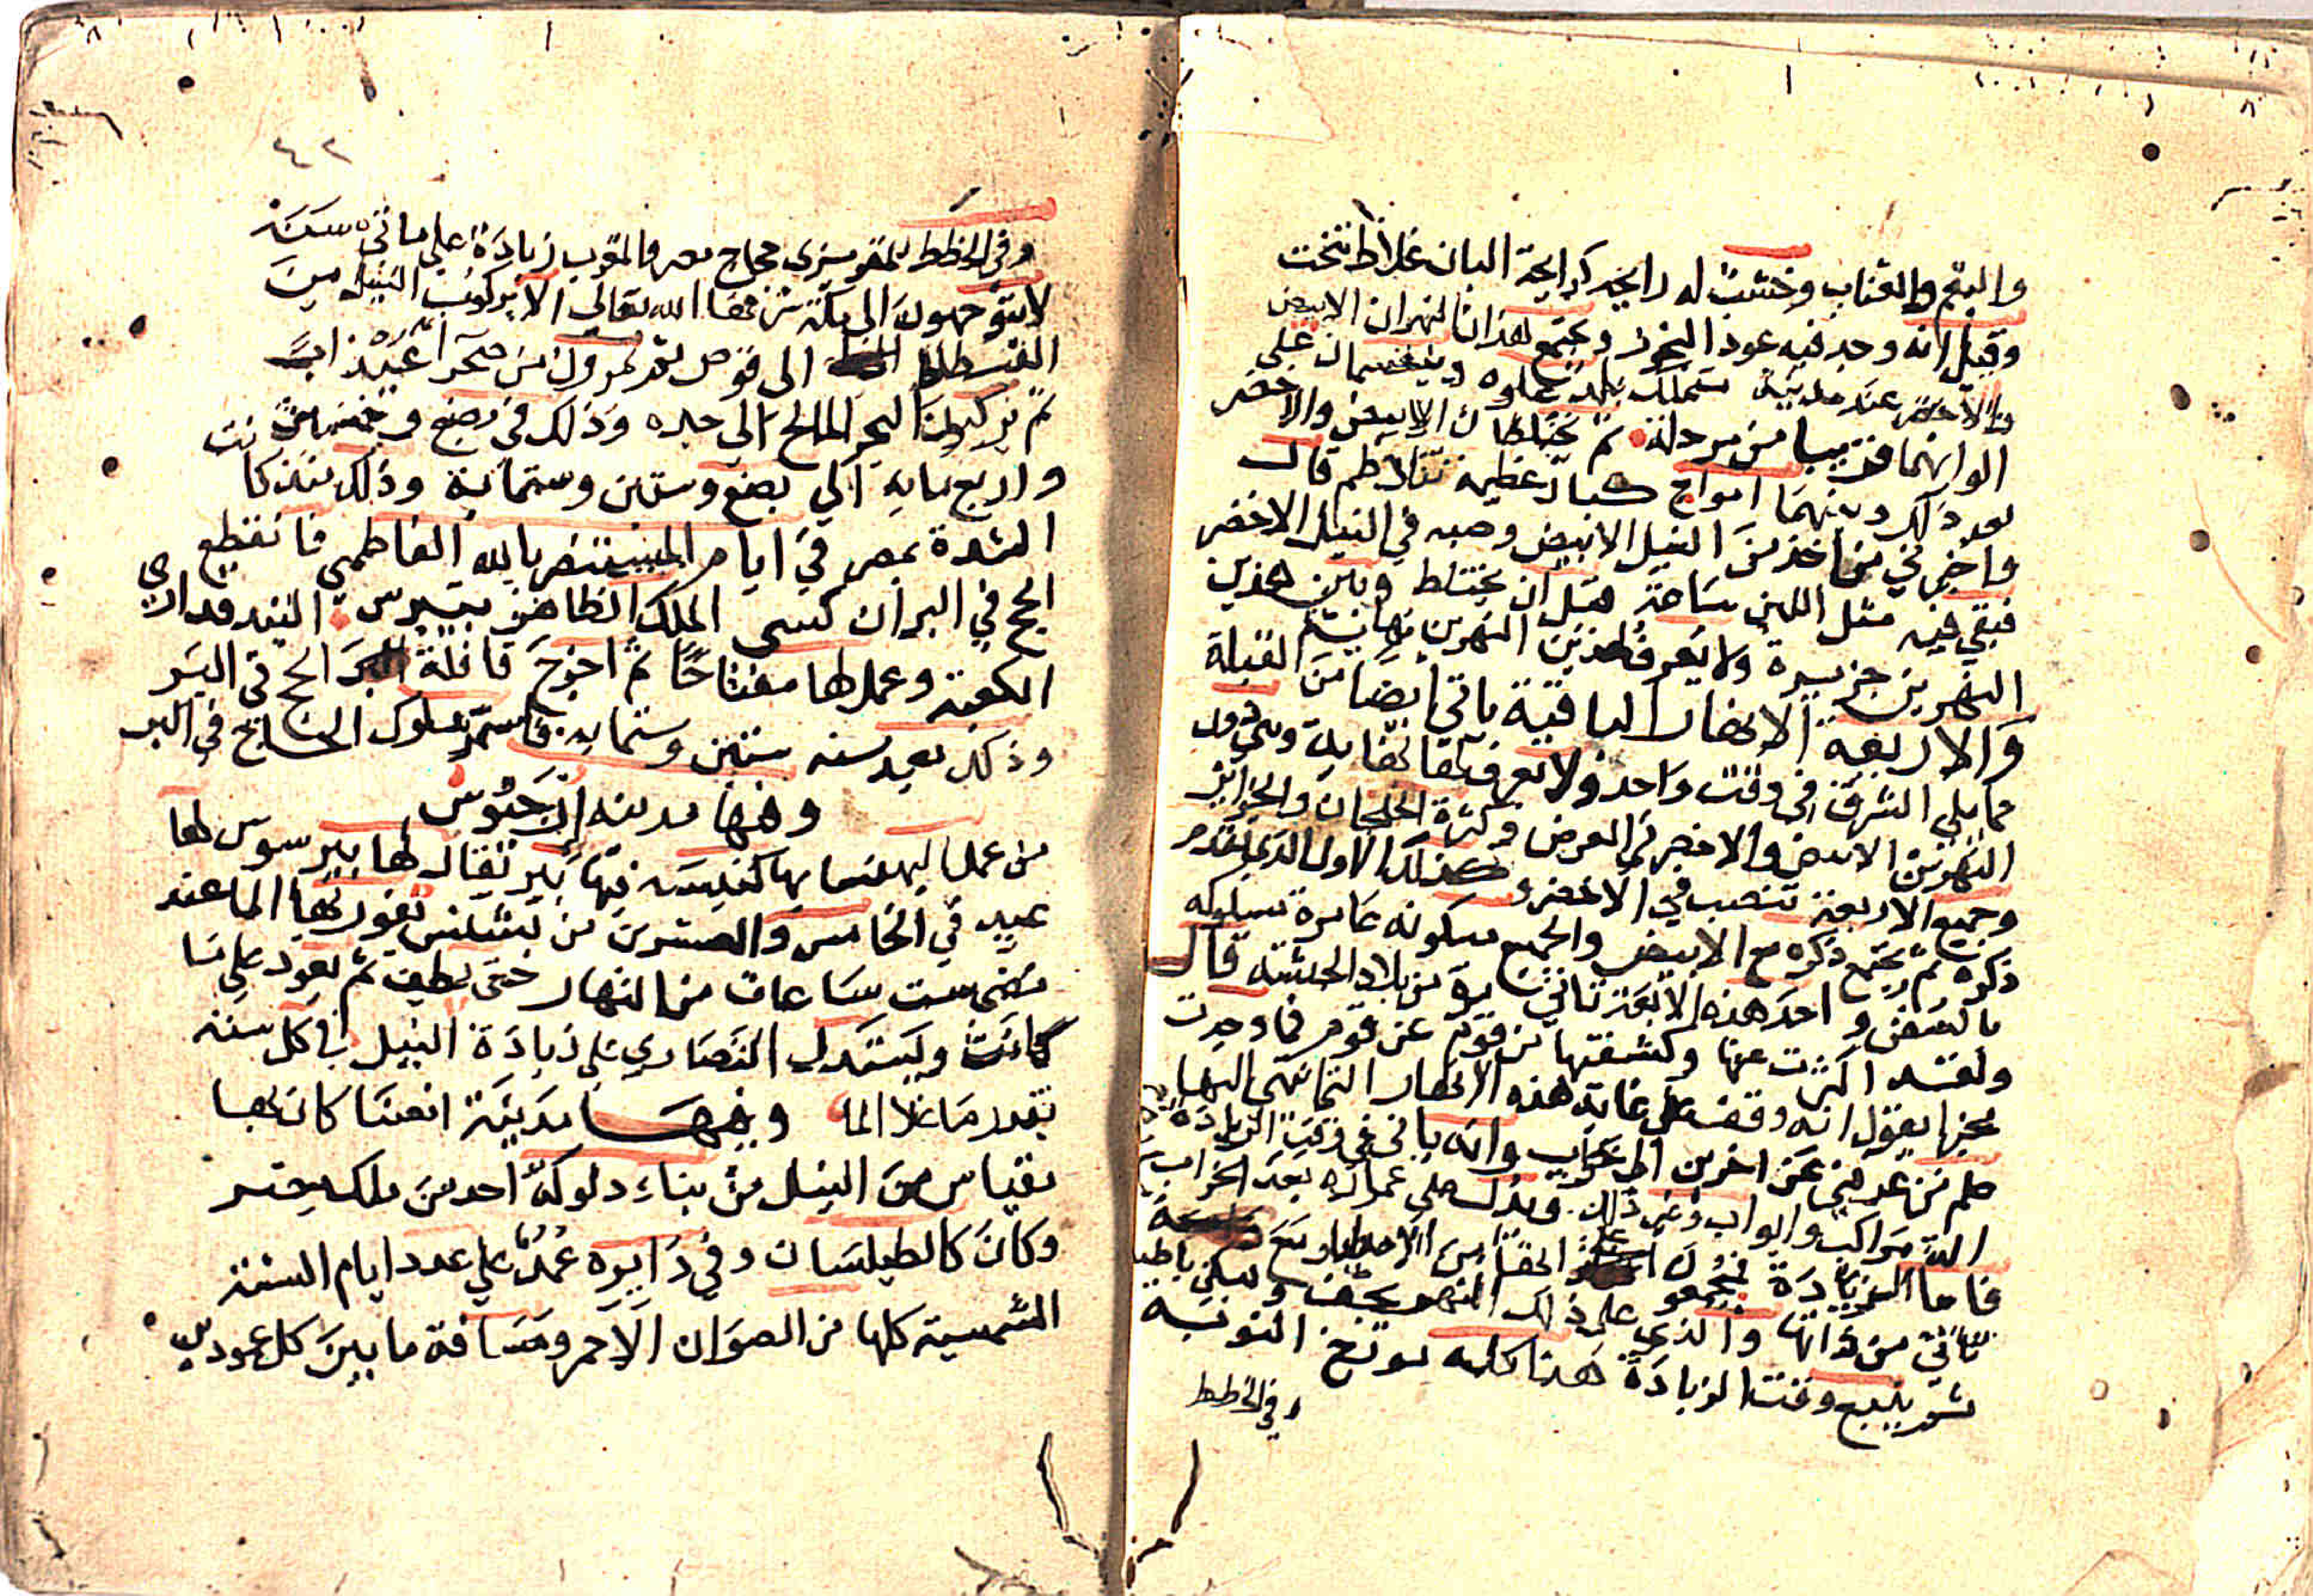 والبقم والقناب وخشب له رايحه كرايحة البان غلاظ تنحت
وقيل انه وجد فيه عود البخور ويجتمع هذان النهران الابيض
والاخضر عند مدينة متملك بلد علوه وينقسمان علي
الوانهما قريبا من مرحلة ثم يختلطان الابيض والاخضر
بعد ذلك وبينهما امواج كبار عظيمه تتلاطم قال
واخبرني من اخذ من النيل الابيض وصبه في النيل الاخضر
فبقي فيه مثل اللبن ساعة قبل ان يختلط وبين هذين
النهرين جزيرة ولا يعرف لهذين النهرين نهاية
والاربعة الانهار الباقية ياتي ايضا من القبلة
مما يلي الشرق في وقت واحد ولا يعرف لها نهاية وهي دون
النهرين الابيض والاخضر في العرض وكثرة الخلجان والجزاير
وجميع الاربعة تنصب في الاخضر وكذلك الاول الذي تقدم
ذكره ثم يجتمع ذكره مع الابيض والجميع مسكونه عامرة مسلوكه
بالسفن و احد هذه الاربعة تاتي من بلاد الحبشة قال
ولقد اكثرت عنها وكشفتها من قوم عن قوم فما وجدت
مخبرا يقول انه وقف علي غاية هذه الانهار انتهي اليها
علم من عرفني عن اخرين الي خراب وانه ياتي في وقت الزيادة
الة مراكب وابواب وغير ذلك ويدل علي عمارة بعد الخراب
فاما الزيادة فيجمعون انها من الامطار مع
تاتي من ذاتها والذي علي ذلك النهر يجف ويسكن باطنه
ثم ينبع وقت الزيادة هذا كله مورخ النوبة
وفي الخطط
٤٢
وفي الخطط للمقريزي حجاج مصر والمغرب زيادة علي ماتي سنة
لا يتوجهون الي مكة شرفها الله تعالي الا يركبون النيل من
الفسطاط الي قوص ثم يمرون من صحرا عيذاب
ثم يركبون البحر المالح الي جده وذلك في بضع وخمسين
واربع مايه الي بضع وستين وستماية وذلك منذ كانت
الشدة بمصر في ايام المستنصر بالله الفاطمي فانقطع
الحج في البر ان كسي الملك الظاهر بيبرس البندقداري
الكعبة وعمل لها مفتاحا ثم اخرج قافلة الحج في البر
وذلك بعد سنه ستين وستمايه فاستمر سلوك الحاج في البر
ومنها مدينه ارجنوس
من عمل البهنسا بها كنيسه فيها بير يقال لها بير سوس لها
عيد في الخامس والعشرين من بشنس يفور بها الما عند
مضي ست ساعات من النهار حتي يطف ثم يعود علي ما
كانت ويستدل النصاري علي زيادة النيل في كل سنه
بقدر ما علا الما ومنها مدينة انصنا كان بها
مقياس من النيل من بناء دلوكة احد من ملك مصر
وكان كالطيلسان وفي دايره عمد علي عدد ايام السنة
الشمسية كلها من الصوان الاحمر ومسافة ما بين كل عودين